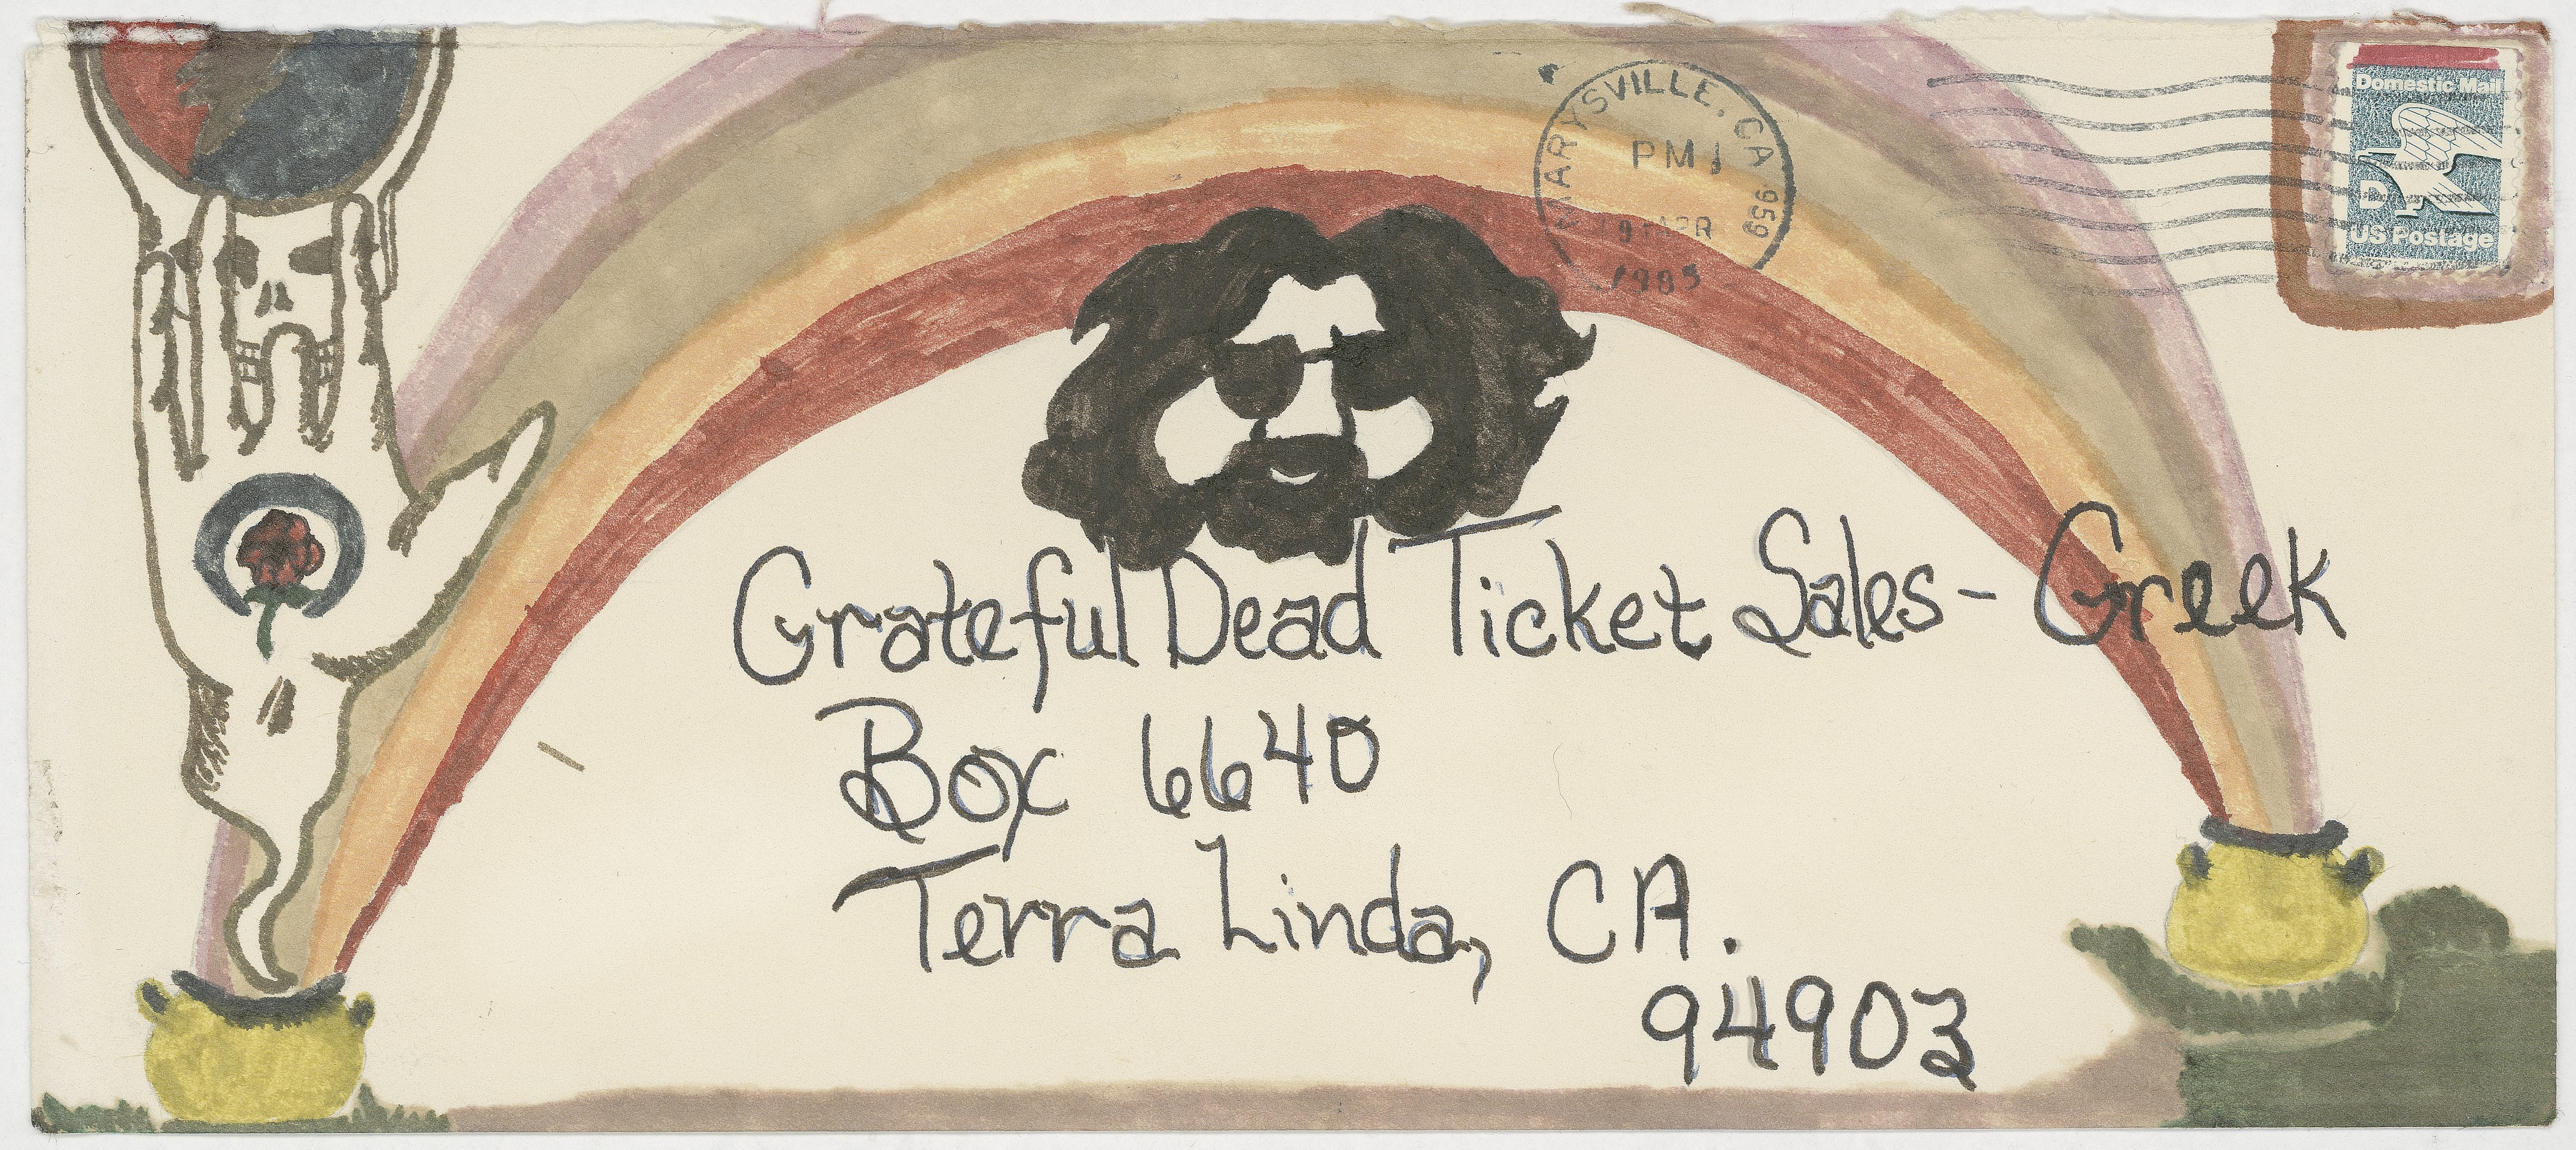 MARYSVILLE, CA 959
PM
1985
Domestic Mail
D
US Postage
Grateful Dead Ticket Sales - Greek
Box 6640
Terra Linda, CA.
94903